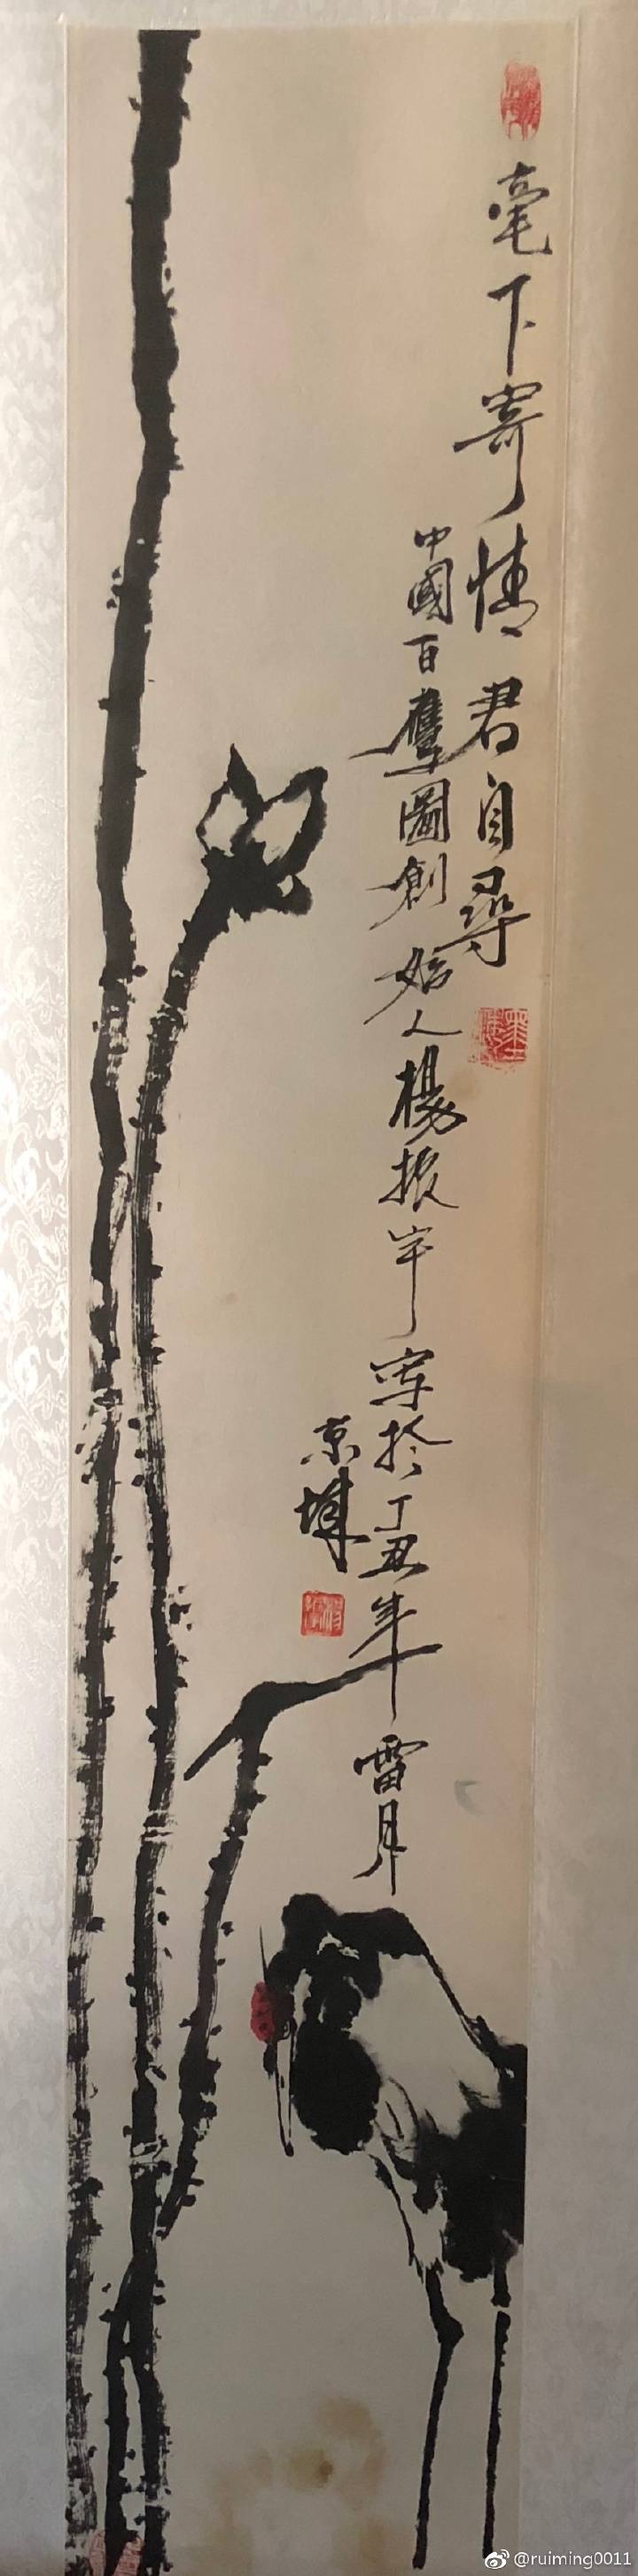 毫下寄情君自尋
中國百鷹圖創始人楊振宇寫於丁丑年雷月
京城
@ruiming0011